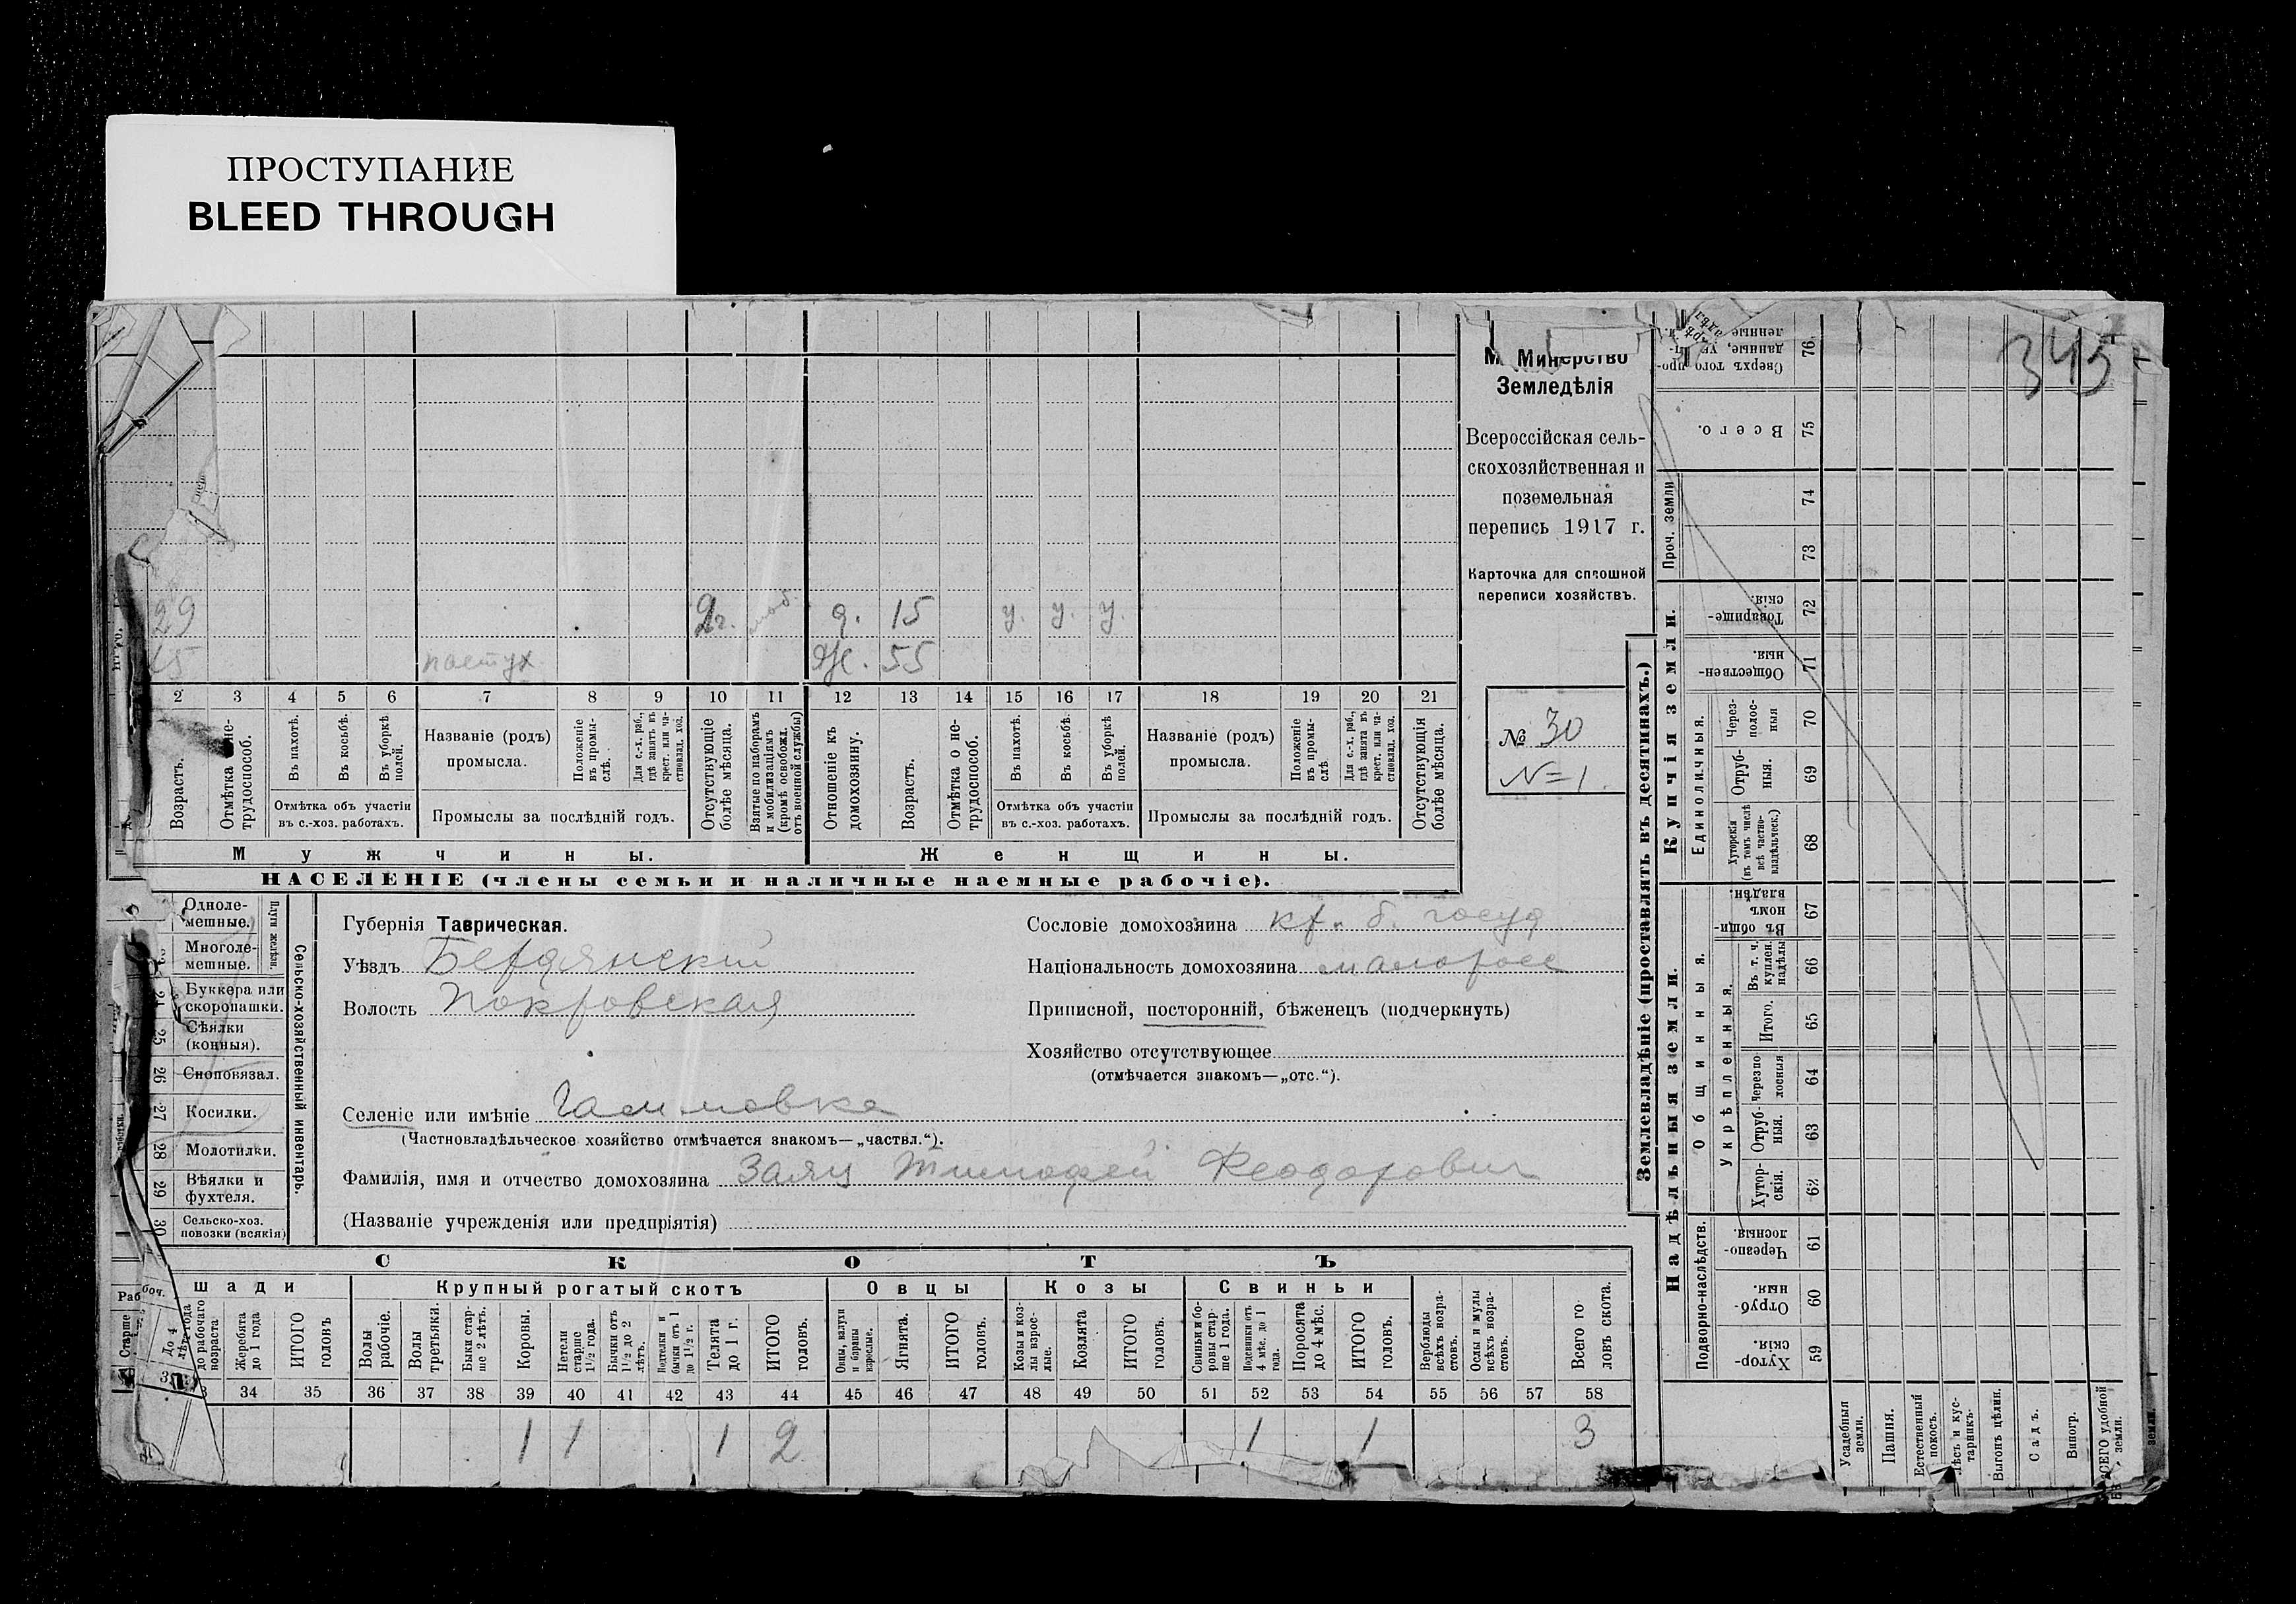 ПРОСТУПАНИЕ
BLEED THROUGH
345
Земледѣлія
Всероссійская сель-
скохозяйственная и
поземельная
перепись 1917 г.
Карточка для сплошной
переписи хозяйствъ.
№ 30
N=1
29 2г. моб. д. 15 у. у. у.
15 пастух ж. 55
2 3 4 5 6 7 8 9 10 11 12 13 14 15 16 17 18 19 20 21
Возрастъ.
трудоспособ.
Въ пахотѣ.
Въ косьбѣ.
Въ уборкѣ полей.
Отмѣтка объ участіи
въ с.-хоз. работахъ.
Названіе (родъ)
промысла.
Положеніе въ промы-слѣ.
Для с.-х. раб., гдѣ занятъ въ крест. или ча-стновлад. хоз.
Промыслы за послѣдній годъ.
Отсутствующіе болѣе мѣсяца.
Взятые по наборамъ и мобилизаціямъ (кромѣ освобожд. отъ военной службы)
Отношеніе къ домохозяину.
Возрастъ.
Отмѣтка о не-трудоспособ.
Въ пахотѣ.
Въ косьбѣ.
Въ уборкѣ полей.
Отмѣтка объ участіи
въ с.-хоз. работахъ.
Названіе (родъ)
промысла.
Положеніе въ промы-слѣ.
Для с.-х. раб., гдѣ занята въ крест. или ча-стновлад. хоз.
Промыслы за послѣдній годъ.
Отсутствующія болѣе мѣсяца.
Мужчины.
Женщины.
НАСЕЛЕНІЕ (члены семьи и наличные наемные рабочіе).
Одноле-
мешные.
Многоле-
мешные.
Плуги желѣзн.
Буккера или
скоропашки.
25 Сѣялки
(конныя).
26 Сноповязал.
27 Косилки.
28 Молотилки.
29 Вѣялки и
фухтеля.
30 Сельско-хоз.
повозки (всякія)
Сельско-хозяйственный инвентарь.
Губернія Таврическая.
Уѣздъ Бердянскій
Волость Покровская
Селеніе или имѣніе Гасимовка
(Частновладѣльческое хозяйство отмѣчается знакомъ—„частвл.“).
Фамилія, имя и отчество домохозяина Заяц Тимофей Феодорович
(Названіе учрежденія или предпріятія)
Сословіе домохозяина кр. б. госуд
Національность домохозяина малоросс
Приписной, посторонній, бѣженецъ (подчеркнуть)
Хозяйство отсутствующее
(отмѣчается знакомъ—„отс.“).
СКОТЪ
шади
Крупный рогатый скотъ
Овцы
Козы
Свиньи
до рабочаго возраста
Жеребята до 1 года
ИТОГО головъ
Волы рабочіе.
Волы третьяки.
Быки стар-ше 2 лѣтъ.
Коровы.
Нетели старше 1½ года.
Бычки отъ 1½ до 2 лѣтъ.
Подтелки и бычки отъ 1 до 1½ г.
Телята до 1 г.
ИТОГО головъ.
Овцы, валухи и бараны взрослые.
Ягнята.
ИТОГО головъ.
Козы и коз-лы взрос-лые.
Козлята
ИТОГО головъ.
Свиньи и бо-ровы стар-ше 1 года.
Подсвинки отъ 4 мѣс. до 1 года.
Поросята до 4 мѣс.
ИТОГО головъ.
Верблюды всѣхъ возра-стовъ.
Ослы и мулы всѣхъ возра-стовъ.
Всего го-ловъ скота.
34 35 36 37 38 39 40 41 42 43 44 45 46 47 48 49 50 51 52 53 54 55 56 57 58
1 1 1 2 1 1 3
Землевладѣніе (проставлять въ десятинахъ.)
Надѣльныя земли.
Купчія земли.
Проч. земли
Подворно-наслѣдств.
Общинныя.
Укрѣпленныя.
Единоличныя.
Всего. 75
74
73
Товарище-скія. 72
Обществен-ныя. 71
Через-полос-ныя 70
Отруб-ныя. 69
Хуторскія (въ томъ числѣ всѣ частно-владѣльческ.) 68
Въ общин-номъ владѣн. 67
Въ т. ч. куплен. надѣлы 66
Итого. 65
Черезпо-лосныя 64
Отруб-ныя. 63
Хутор-скія. 62
Черезпо-лосныя. 61
Отруб-ныя. 60
Хутор-скія. 59
Усадебныя земли.
Пашня.
Естественный покосъ.
Лѣсъ и кус-тарникъ.
Выгонъ цѣлин.
Садъ.
Виногр.
ВСЕГО удобной земли.